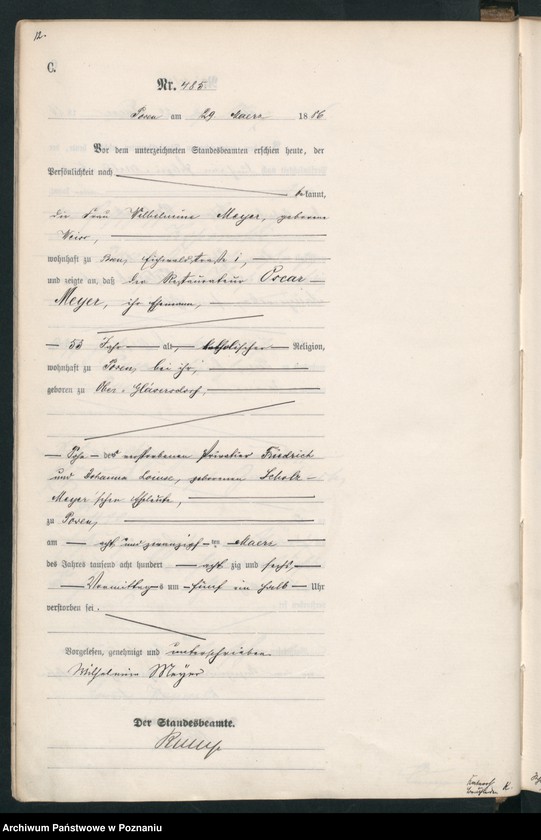 12.
C.
Nr. 485
Posen am 29 Maerz 1886
Vor dem unterzeichneten Standesbeamten erschien heute, der
Persönlichkeit nach
bekannt,
die Frau Wilhelmine Meyer, geborene
wohnhaft zu Posen, Eichwaldstraße 1,
und zeigte an, daß der Restaurateur Oscar
Meyer, ihr Ehemann,
53 Jahr alt, katholischer Religion,
wohnhaft zu Posen, bei ihr,
geboren zu Ober-
Sohn des verstorbenen Friedrich
und Johanna Louise, geborenen Scholz
Meyer'schen Eheleute,
zu Posen,
am acht und zwanzigsten Maerz
des Jahres tausend acht hundert acht zig und sechs,
Vormittags um fünf ein halb Uhr
verstorben sei.
Vorgelesen, genehmigt und unterschrieben
Wilhelmine Meyer
Der Standesbeamte.
Archiwum Państwowe w Poznaniu